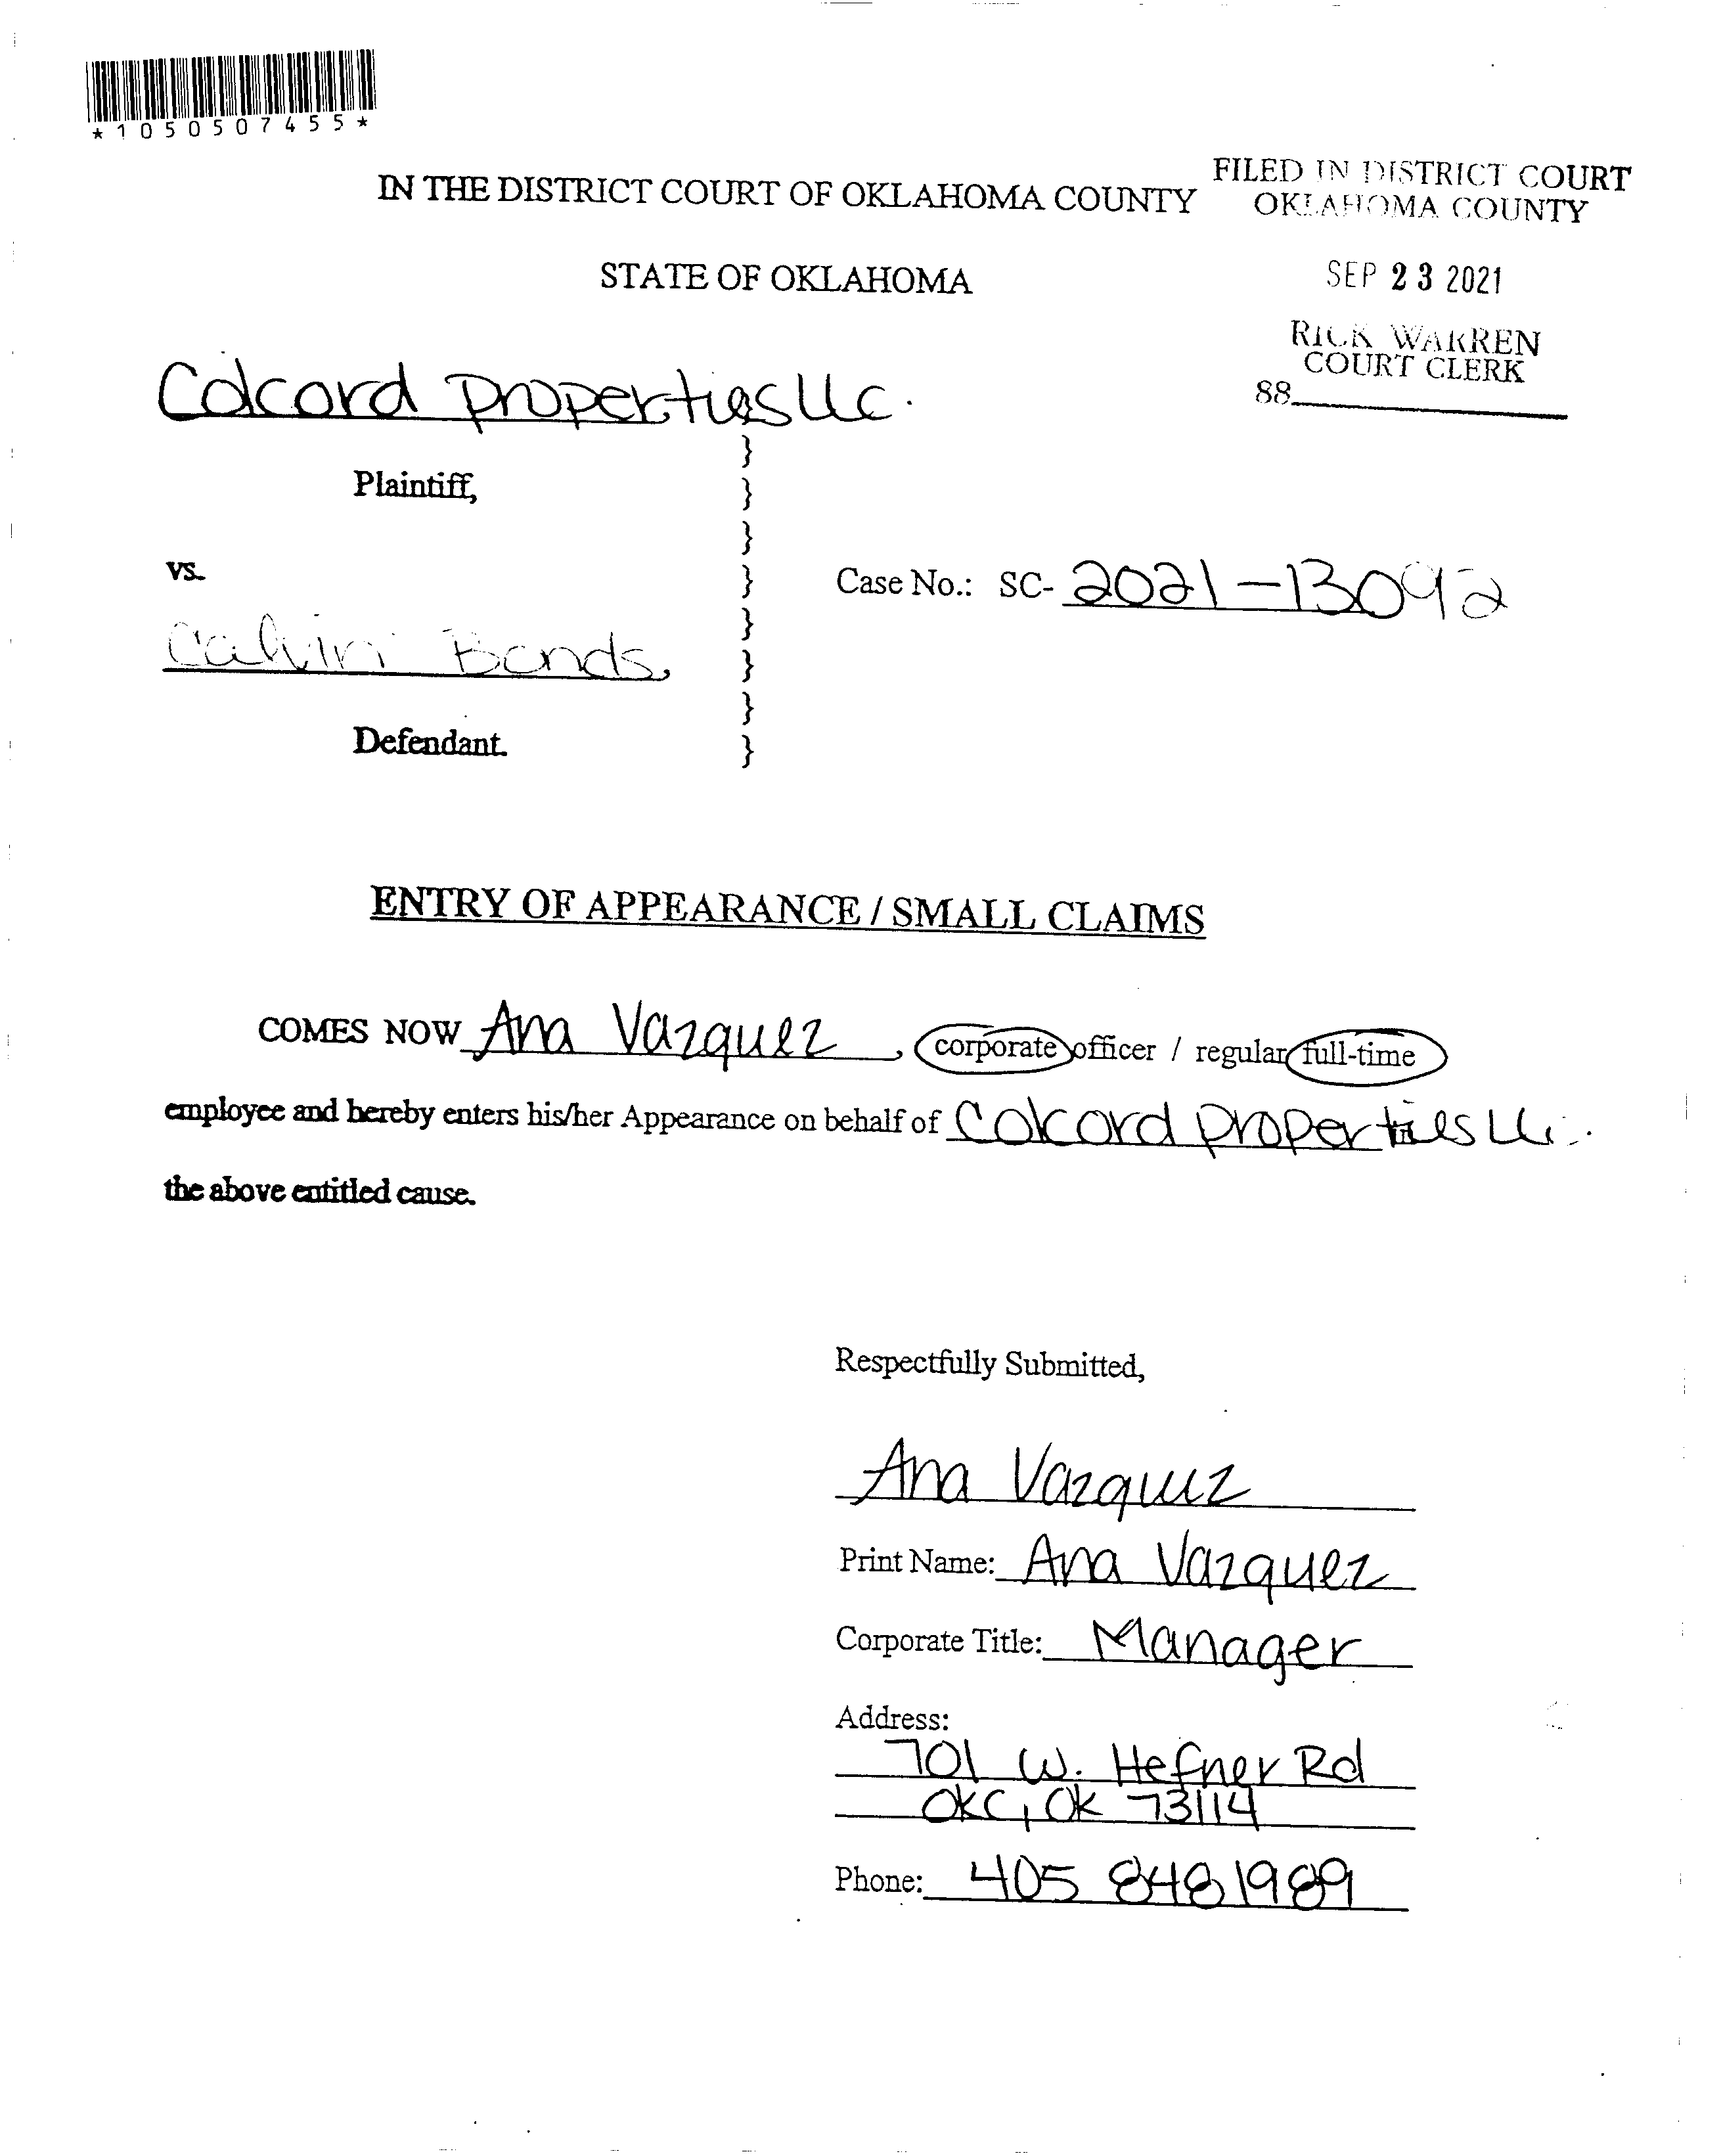 *1050507455*
IN THE DISTRICT COURT OF OKLAHOMA COUNTY
FILED IN DISTRICT COURT
OKLAHOMA COUNTY
STATE OF OKLAHOMA
SEP 23 2021
RICK WARREN
COURT CLERK
88
Colcord properties llc.
}
Plaintiff,
}
}
vs.
}
Case No.: SC- 2021-13092
}
Calvin Bonds,
}
}
Defendant.
}
ENTRY OF APPEARANCE / SMALL CLAIMS
COMES NOW Ana Vazquez, corporate officer / regular full-time
employee and hereby enters his/her Appearance on behalf of Colcord properties llc.
the above entitled cause.
Respectfully Submitted,
Ana Vazquez
Print Name: Ana Vazquez
Corporate Title: Manager
Address:
701 W. Hefner Rd
OKC, OK 73114
Phone: 405 848 1989